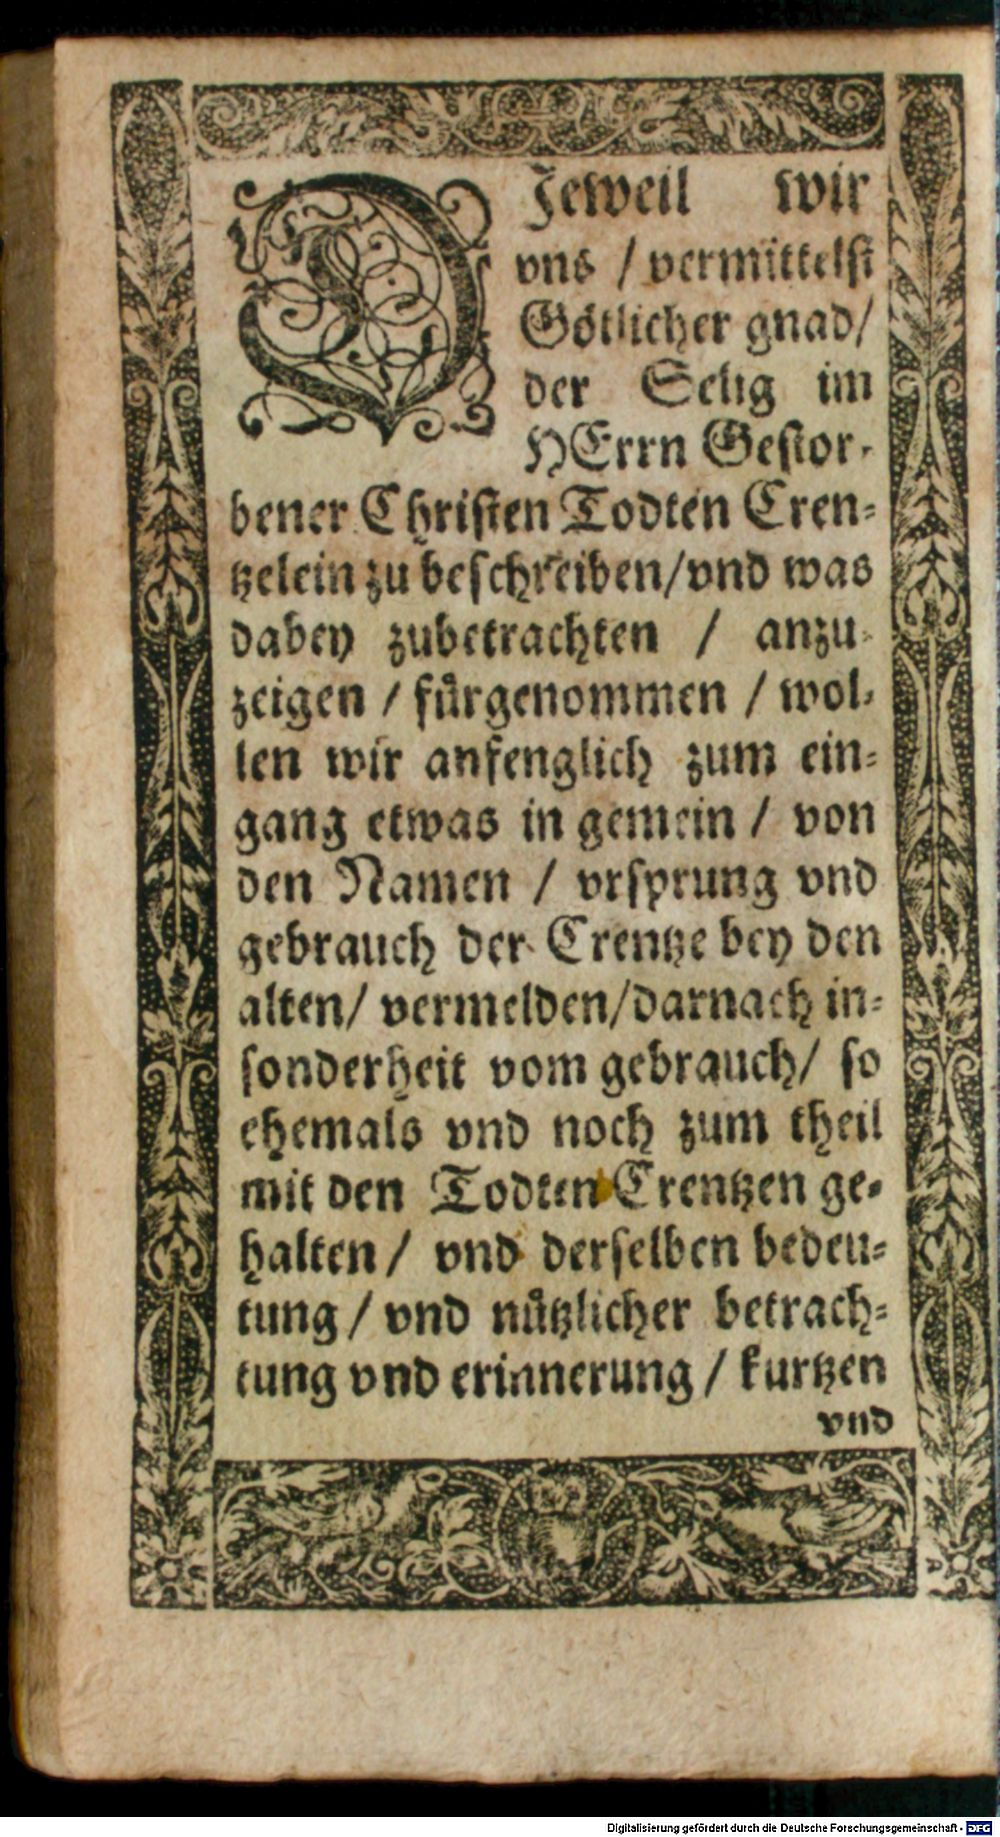 DJeweil wir
vns / vermittelst
Götlicher gnad/
der Selig im
HErrn Gestor-
bener Christen Todten Cren-
tzelein zu beschreiben/vnd was
dabey zubetrachten / anzu-
zeigen / fürgenommen / wol-
len wir anfenglich zum ein-
gang etwas in gemein / von
den Namen / vrsprung vnd
gebrauch der Crentze bey den
alten/ vermelden/darnach in-
sonderheit vom gebrauch/ so
ehemals vnd noch zum theil
mit den Todten Crentzen ge-
halten / vnd derselben bedeu-
tung / vnd nützlicher betrach-
tung vnd erinnerung / kurtzen
vnd
Digitalisierung gefördert durch die Deutsche Forschungsgemeinschaft - DFG